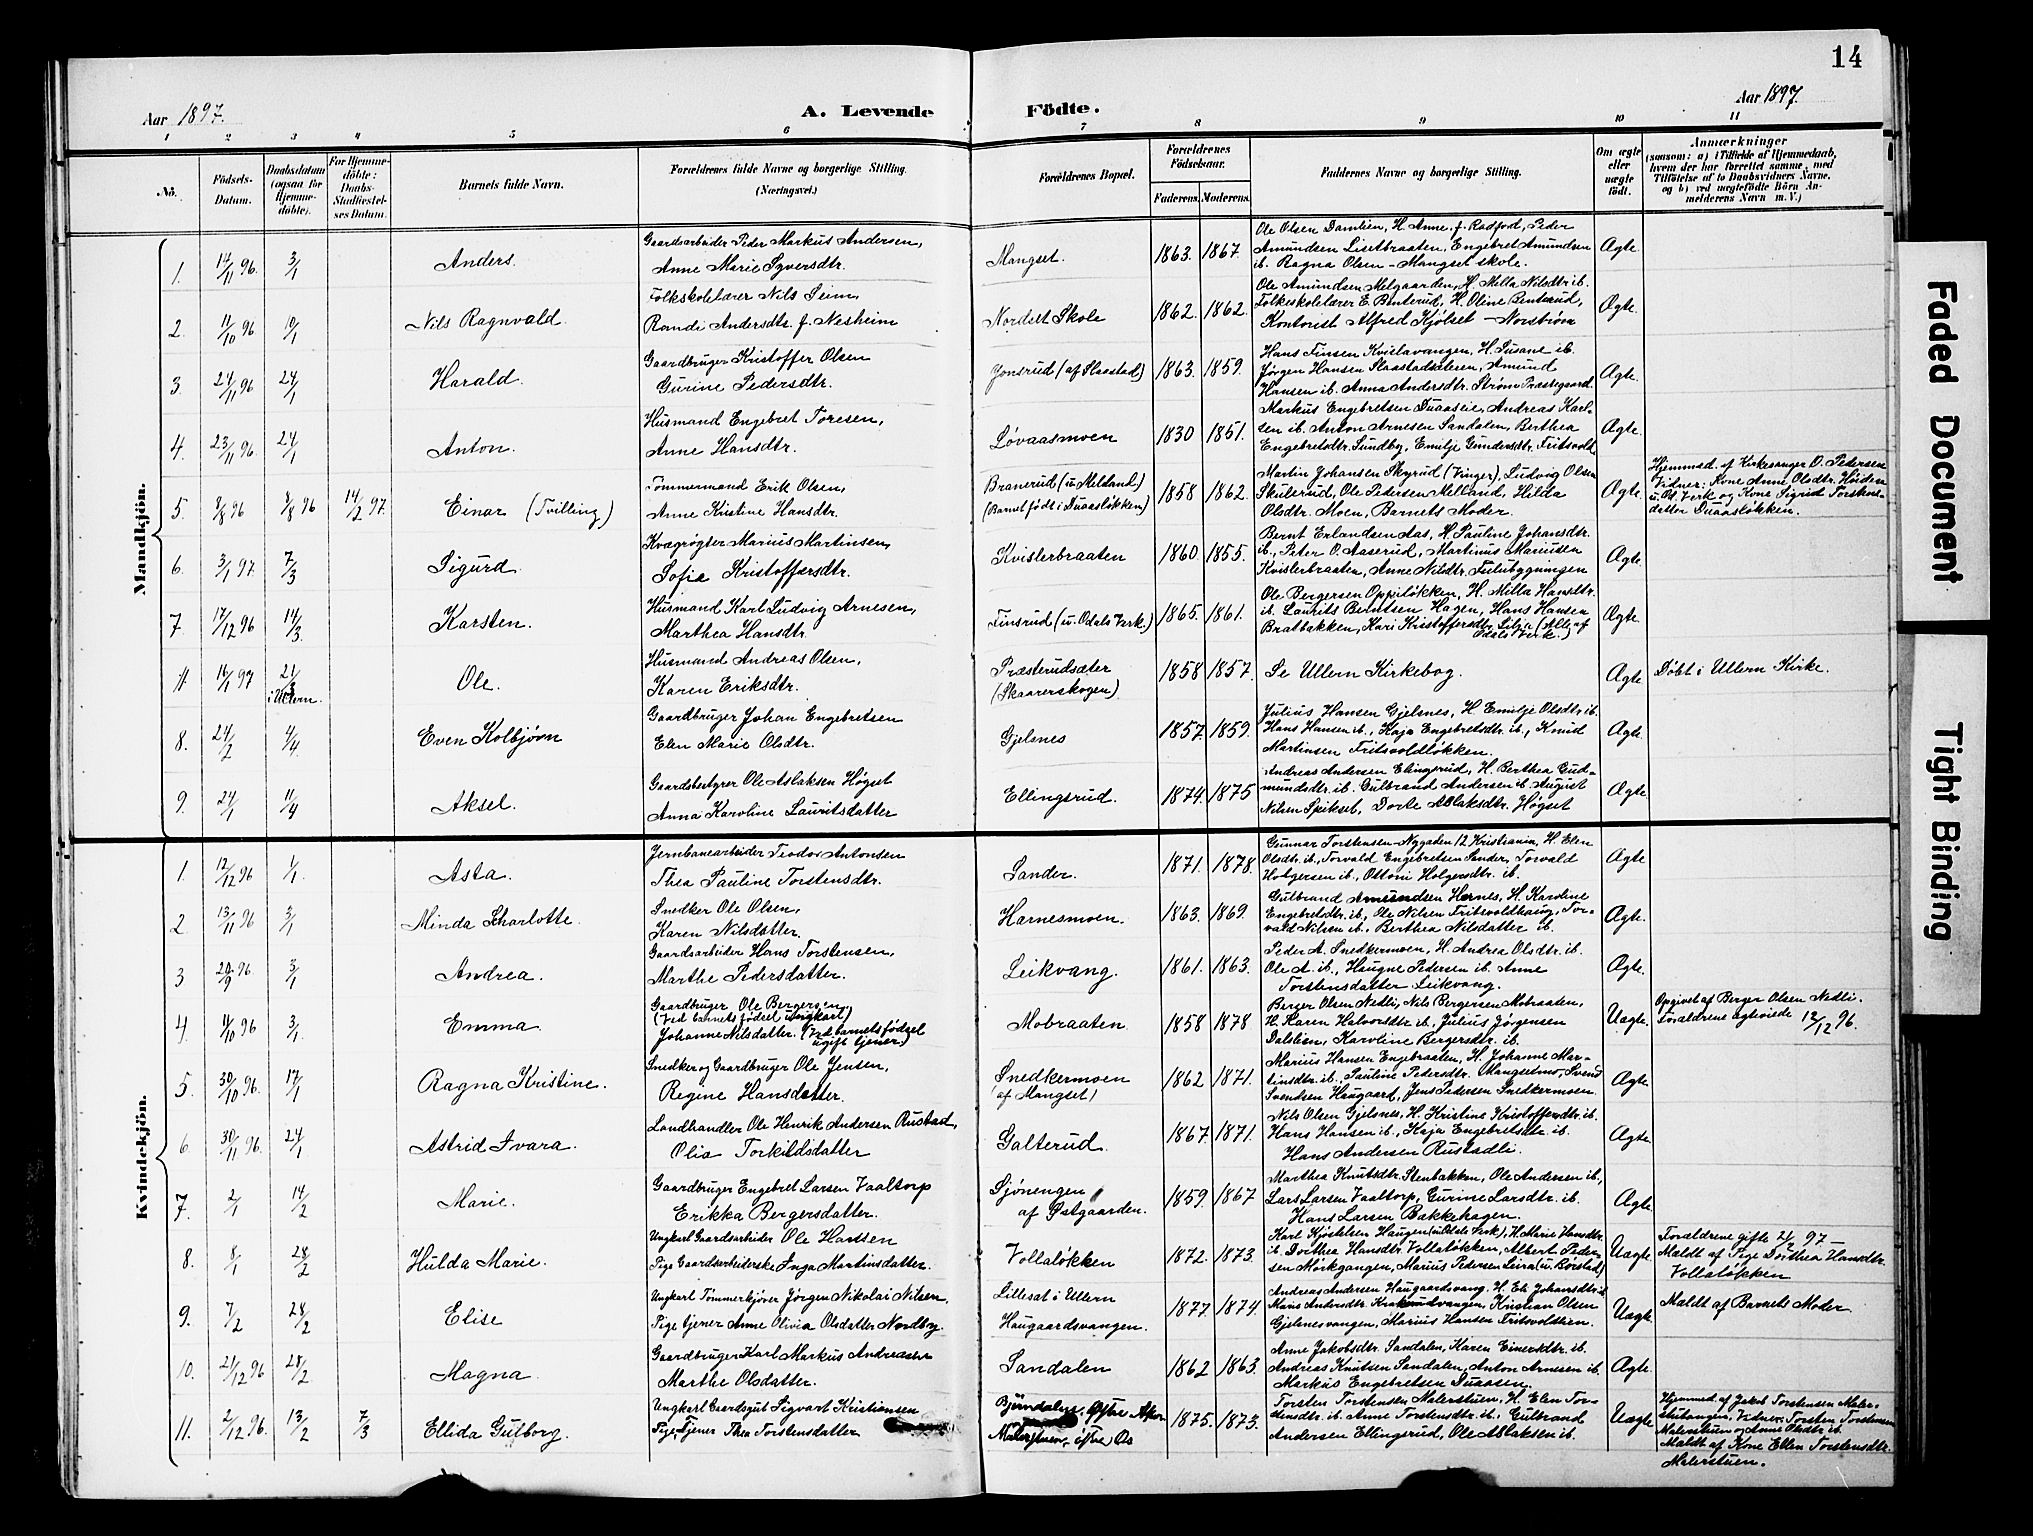 14
Aar 1897.
A. Levende Födte.
Aar 1897.
1 2 3 4 5 6 7 8 9 10 11
No.
Födsels-Datum.
Daabsdatum (ogsaa for Hjemmedöbte).
For Hjemmedöbte: Daabs-Stadfæstelses Datum.
Barnets fulde Navn.
Forældrenes fulde Navne og borgerlige Stilling. (Næringsvei.)
Forældrenes Bopæl.
Forældrenes Födselsaar.
Faderens. Moderens.
Faddernes Navne og borgerlige Stilling.
Om ægte eller uægte födt.
Anmærkninger
(saasom: a) i Tilfælde af Hjemmedaab, hvem der har forrettet samme, med Tilföielse af to Daabsvidners Navne, og b) ved uægtefödte Börn Anmelderens Navn m. V.)
Mandkjön.
1. 14/11 96. 3/1 Anders.
Gaardsarbeider Peder Markus Andersen,
Anne Marie Syversdtr.
Mangset. 1863. 1867.
Ole Olsen Damlien, H. Anne. f. Rødfod, Peder
Amundsen Lisetbraaten, Engebret Amundsen
ib. Ragna Olsen - Mangset skole.
Ægte.
2. 11/10 96 10/1 Nils Ragnvald.
Folkskolelærer Nils Seim,
Randi Andersdtr. f. Nesheim
Nordset Skole 1862. 1862.
Ole Amundsen Melgaarden, H. Mella Nilsdtr ib.
Folkeskolelærer E. Benterud, H. Oline Benterud,
Kontorist Alfred Kjølset - Norstrøm
Ægte.
3 24/11 96 24/1 Harald.
Gaardbruger Kristoffer Olsen
Gurine Pedersdtr.
Jonsrud (af Slaastad) 1863. 1859.
Hans Finsen Kvislavangen, H. Susane ib.
Jørgen Hansen Slaastadsletten, Amund
Hansen ib. Anna Andersdtr. Strøm Præstegaard.
Ægte.
4. 23/11 96. 24/1 Anton.
Husmand Engebret Toresen,
Anne Hansdtr.
Løvaasmoen 1830 1851.
Markus Engebretsen Duaaseie, Andreas Karl-
sen ib. Anton Arnesen Sandalen, Berthea
Engebretsdtr. Sundby, Emilje Gundersdtr. Fritsvold
Ægte.
5. 8/8 96 8/8 96 14/2 97. Einar (Tvilling)
Tømmermand Erik Olsen,
Anne Kristine Hansdtr.
Branerud (u. Melland)
(Barnet født i Duaasløkken) 1858 1862.
Martin Johansen Skyrud (Vinger), Ludvig Olsen
Skulerud, Ole Pedersen Melland, Hilda
Olsdtr. Moen, Barnets Moder.
Ægte.
Hjemmed. af Kirkesanger O. Pedersen
Vidner: Kone Anne Olsdtr. Heiden
u. Od. Verk og Kone Sigrid Torstens-
datter Duaasløkken.
6. 3/1 97. 7/3 Sigurd.
Kvægrøgter Marius Martinsen,
Sofie Kristoffersdtr.
Kvislerbraaten 1860 1855.
Bernt Erlandsen Aas, H. Pauline Johansdtr.
ib., Peter O. Aaserud, Martinus Mariusen
Kvislerbraaten, Anne Nilsdtr.
Ægte.
7. 17/12 96 14/3 Karsten.
Husmand Karl Ludvig Arnesen,
Marthea Hansdtr.
Finsrud (u. Odals Verk.) 1865. 1861.
Ole Bergersen Oppiløkken, H. Mella Hansdtr.
ib. Laurits Berntsen Hagen, Hans Hansen
Bratbakken, Kari Kristoffersdtr. Lilja (Alle af
Odals Verk.)
Ægte.
11. 16/1 97 21/3 i Ullern. Ole.
Husmand Andreas Olsen,
Karen Eriksdtr.
Præsterudsæter
(Skaarerskogen) 1858 1857.
Se Ullern Kirkebog.
Ægte
Døbt i Ullern Kirke.
8. 24/2 4/4. Even Kolbjørn
Gaardbruger Johan Engebretsen
Elen Marie Olsdtr.
Gjelsnes 1857. 1859.
Julius Hansen Gjelsnes, H Emilje Olsdtr ib.
Hans Hansen ib., Kaja Engebretsdtr. ib., Knud
Martinsen Fritsvoldløkken.
Ægte.
9. 24/1 11/4 Aksel.
Gaardsbestyrer Ole Aslaksen Høgset
Anna Karoline Lauritsdatter
Ellingsrud. 1874. 1875
Andreas Andersen Elingsrud, H. Berthea Gud-
mundsdtr. ib. Gulbrand Andersen ib. August
Nilsen Spikset, Dorte Aslaksdtr. Høgset
Ægte.
Kvindekjön.
1. 12/12 96 1/1. Asta.
Jernbanearbeider Teodor Antonsen
Thea Pauline Torstensdtr.
Sander. 1871. 1878.
Gunnar Torstensen Nygaden 12 Kristiania, H. Elen
Olsdtr. ib., Torvald Engebretsen Sander, Torvald
Holgersen ib., Ottomi Holgersdtr. ib.
Ægte
2 13/11 96 3/1 Minda Scharlotte.
Snedker Ole Olsen,
Karen Nilsdatter.
Harnesmoen. 1863. 1869.
Gulbrand Amundsen Harnes, H. Karoline
Engebretsdtr. ib., Ole Nilsen Fritsvoldhaug, Tor-
vald Nilsen ib., Berthea Nilsdatter ib.
Ægte.
3 20/9 96. 3/1 Andrea.
Gaardsarbeider Hans Torstensen,
Marthe Pedersdatter.
Leikvang. 1861. 1863.
Peder A. Snedkermoen, H. Andrea Olsdtr. ib.
Ole A. ib., Haagne Pedersen ib. Anne
Torstensdatter Leikvang.
Ægte
4. 4/10 96 3/1. Emma
Gaardbruger Ole Bergersen
(Ved barnets fødsel ungkarl)
Johanne Nilsdatter. (Ved barnets fødsel
ugift tjener.)
Mobraaten 1858 1878
Berger Olsen Nedli, Nils Bergersen Mobraaten,
H. Karen Halvorsdtr. ib., Julius Jørgensen
Dalslien, Karoline Bergersdtr. ib.
Uægte.
Opgivet af Berger Olsen Nedli.
Forældrene ægteviede 12/12 96.
5. 30/10 96. 17/1 Ragna Kristine.
Snedker og Gaardbruger Ole Jensen,
Regine Hansdatter.
Snedkermoen
(af Mangset) 1862 1871.
Marius Hansen Engebraaten, H. Johanne Mar-
tinsdtr. ib., Pauline Pedersdtr. Mangsetmo, Svend
Svendsen Haugaard, Jens Pedersen Snedkermoen.
Ægte
6 30/11 96. 24/1 Astrid Ivara.
Landhandler Ole Henrik Andersen Rustad,
Olia Torkildsdatter
Galterud. 1867. 1871.
Nils Olsen Gjelsnes, H. Kristine Kristoffersdtr. ib.
Hans Hansen ib., Kaja Engebretsdtr. ib.
Hans Andersen Rustadli.
Ægte.
7. 2/1 14/2 Marie.
Gaardbruger Engebret Larsen Vaaltorp
Erikka Bergersdatter.
Sjønengen
af Østgaarden. 1859. 1867
Marthea Knutsdtr. Stenbakken, Ole Andersen ib.,
Lars Larsen Vaaltorp, Gurine Larsdtr. ib.
Hans Larsen Bakkehagen.
Ægte.
8. 8/1 28/2 Hulda Marie.
Ungkarl Gaardsarbeider Ole Hansen
Pige Gaardsarbeiderske Inga Martinsdatter.
Vollaløkken 1872. 1873.
Karl Kjølstsen Haugen (u. Odals Verk), H. Marie Hansdtr.
ib. Dorthea Hansdtr. Vollaløkken, Albert Peder-
sen Mørkgangen, Marius Pedersen Leira (u. Rørstad)
Uægte.
Forældrene gifte 21/2 97 —
Meldt af Pige Dorthea Hansdtr.
Vollaløkken
9. 7/2 28/2 Elise
Ungkarl Tømmerkjører Jørgen Nikolai Nilsen,
Pige tjener Anne Olivia Olsdatter Nordby.
Lilleset i Ullern
Haugaardsvangen. 1877. 1874.
Andreas Andersen Haugaardsvang. H. Eli Johansdtr ib
Maris Andersdtr. Krakerudvangen, Kristian Olsen
Gjelsnesvangen, Marius Hansen Fritsvoldlien.
Uægte.
Meldt af Barnets Moder
10. 21/12 96 28/2. Magna
Gaardbruger Karl Markus Andreassen
Marthe Olsdatter.
Sandalen 1862 1863.
Anne Jakobsdtr. Sandalen, Karen Einersdtr. ib.
Andreas Knutsen Sandalen, Anton Arnesen ib.
Markus Engebretsen Duaasen.
Ægte.
11. 2/12 96. 13/2 7/3 Ellida Gulborg.
Ungkarl Gaardsgut Sigvart Kristiansen
Pige Tjener Thea Torstensdatter
1875. 1873.
Torsten Torstensen Malerstuen, H. Elen Tor-
stensdtr. ib. Anne Torstensdtr. ib., Gulbrand
Andersen Ellingsrud, Ole Aslaksen ib.
Uægte
Hjemmed. af Jakob Torstensen Maler-
stubangen, Vidner: Torsten Torstensen
Malerstuen og Anne Olsdtr. ib.
Meldt af Kone Ellen Torstensdtr.
Malerstuen.
Faded Document
Tight Binding